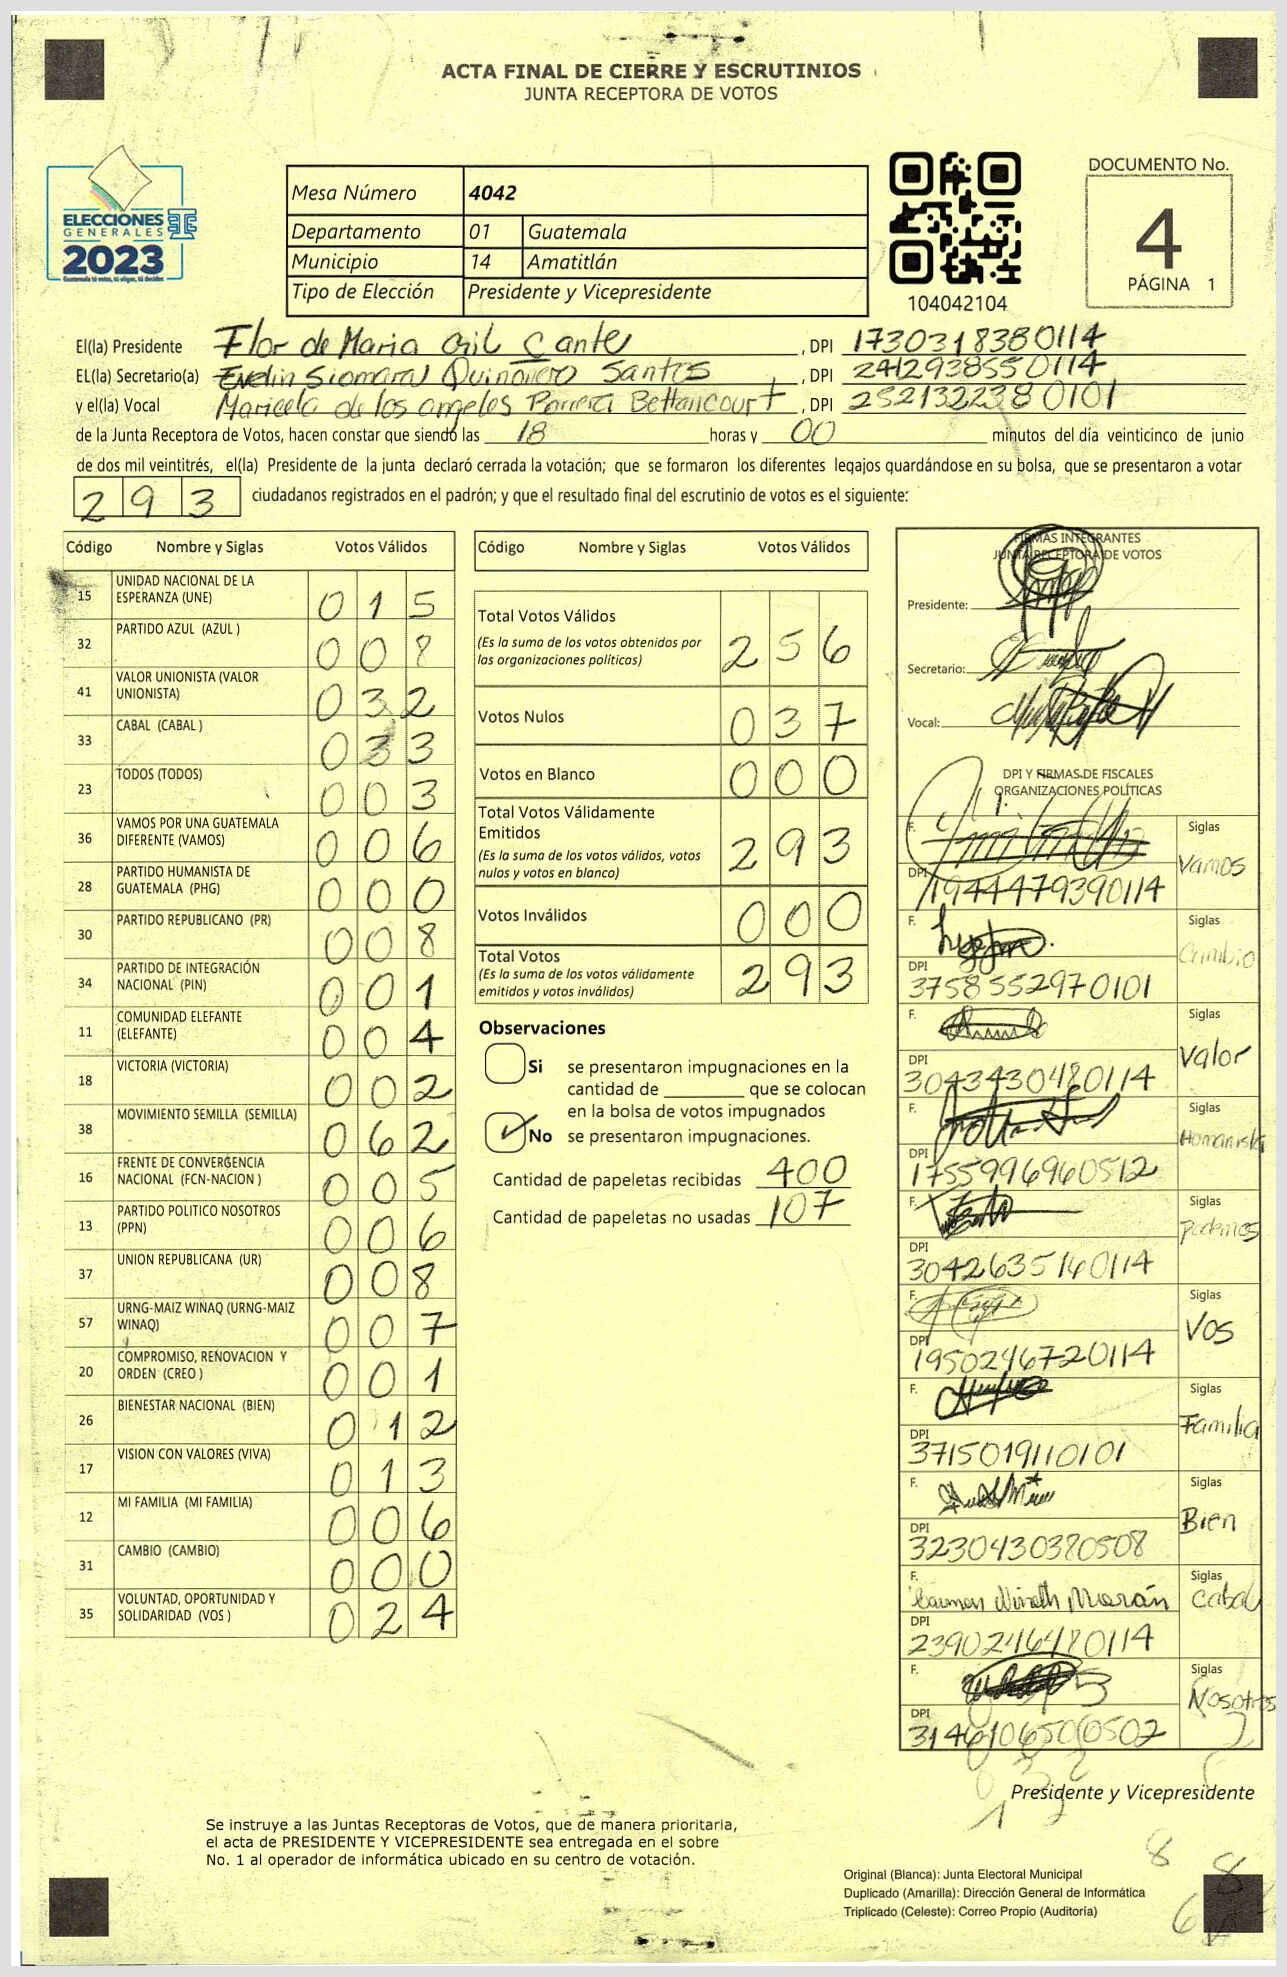 ACTA FINAL DE CIERRE Y ESCRUTINIOS
JUNTA RECEPTORA DE VOTOS
ELECCIONES
GENERALES
2023
Mesa Número 4042
Departamento 01 Guatemala
Municipio 14 Amatitlán
Tipo de Elección Presidente y Vicepresidente
104042104
DOCUMENTO No.
4
PÁGINA 1
El(la) Presidente Flor de Maria Gil Cante, DPI 1730318380114
EL(la) Secretario(a) Evelin Siomara Quiñonero Santos, DPI 2412938550114
y el(la) Vocal Maricela de los angeles Parrera Bettancourt, DPI 2521322380101
de la Junta Receptora de Votos, hacen constar que siendo las 18 horas y 00 minutos del día veinticinco de junio
de dos mil veintitrés, el(la) Presidente de la junta declaró cerrada la votación; que se formaron los diferentes legajos guardándose en su bolsa, que se presentaron a votar
293 ciudadanos registrados en el padrón; y que el resultado final del escrutinio de votos es el siguiente:
Código Nombre y Siglas Votos Válidos
15 UNIDAD NACIONAL DE LA ESPERANZA (UNE) 015
32 PARTIDO AZUL (AZUL ) 008
41 VALOR UNIONISTA (VALOR UNIONISTA) 032
33 CABAL (CABAL ) 033
23 TODOS (TODOS) 003
36 VAMOS POR UNA GUATEMALA DIFERENTE (VAMOS) 006
28 PARTIDO HUMANISTA DE GUATEMALA (PHG) 000
30 PARTIDO REPUBLICANO (PR) 008
34 PARTIDO DE INTEGRACIÓN NACIONAL (PIN) 001
11 COMUNIDAD ELEFANTE (ELEFANTE) 004
18 VICTORIA (VICTORIA) 002
38 MOVIMIENTO SEMILLA (SEMILLA) 062
16 FRENTE DE CONVERGENCIA NACIONAL (FCN-NACION ) 005
13 PARTIDO POLITICO NOSOTROS (PPN) 006
37 UNION REPUBLICANA (UR) 008
57 URNG-MAIZ WINAQ (URNG-MAIZ WINAQ) 007
20 COMPROMISO, RENOVACION Y ORDEN (CREO ) 001
26 BIENESTAR NACIONAL (BIEN) 012
17 VISION CON VALORES (VIVA) 013
12 MI FAMILIA (MI FAMILIA) 006
31 CAMBIO (CAMBIO) 000
35 VOLUNTAD, OPORTUNIDAD Y SOLIDARIDAD (VOS ) 024
Código Nombre y Siglas Votos Válidos
Total Votos Válidos 256
(Es la suma de los votos obtenidos por
las organizaciones políticas)
Votos Nulos 037
Votos en Blanco 000
Total Votos Válidamente
Emitidos 293
(Es la suma de los votos válidos, votos
nulos y votos en blanco)
Votos Inválidos 000
Total Votos 293
(Es la suma de los votos válidamente
emitidos y votos inválidos)
Observaciones
Si se presentaron impugnaciones en la
cantidad de ________ que se colocan
en la bolsa de votos impugnados
No se presentaron impugnaciones.
Cantidad de papeletas recibidas 400
Cantidad de papeletas no usadas 107
FIRMAS INTEGRANTES
JUNTA RECEPTORA DE VOTOS
Presidente:
Secretario:
Vocal:
DPI Y FIRMAS DE FISCALES
ORGANIZACIONES POLÍTICAS
F. Siglas Vamos
DPI 1944479390114
F. Siglas Cambio
DPI 3758552970101
F. Siglas Valor
DPI 3043430480114
F. Siglas Homanista
DPI 1755996960512
F. Siglas podemos
DPI 3042635160114
F. Siglas Vos
DPI 1950246720114
F. Siglas Familia
DPI 3715019110101
F. Siglas Bien
DPI 3230430380508
F. Carmen Morán Siglas Cabal
DPI 2390246480114
F. Siglas Nosotros
DPI 3146106500502
Presidente y Vicepresidente
Se instruye a las Juntas Receptoras de Votos, que de manera prioritaria,
el acta de PRESIDENTE Y VICEPRESIDENTE sea entregada en el sobre
No. 1 al operador de informática ubicado en su centro de votación.
Original (Blanca): Junta Electoral Municipal
Duplicado (Amarilla): Dirección General de Informática
Triplicado (Celeste): Correo Propio (Auditoría)